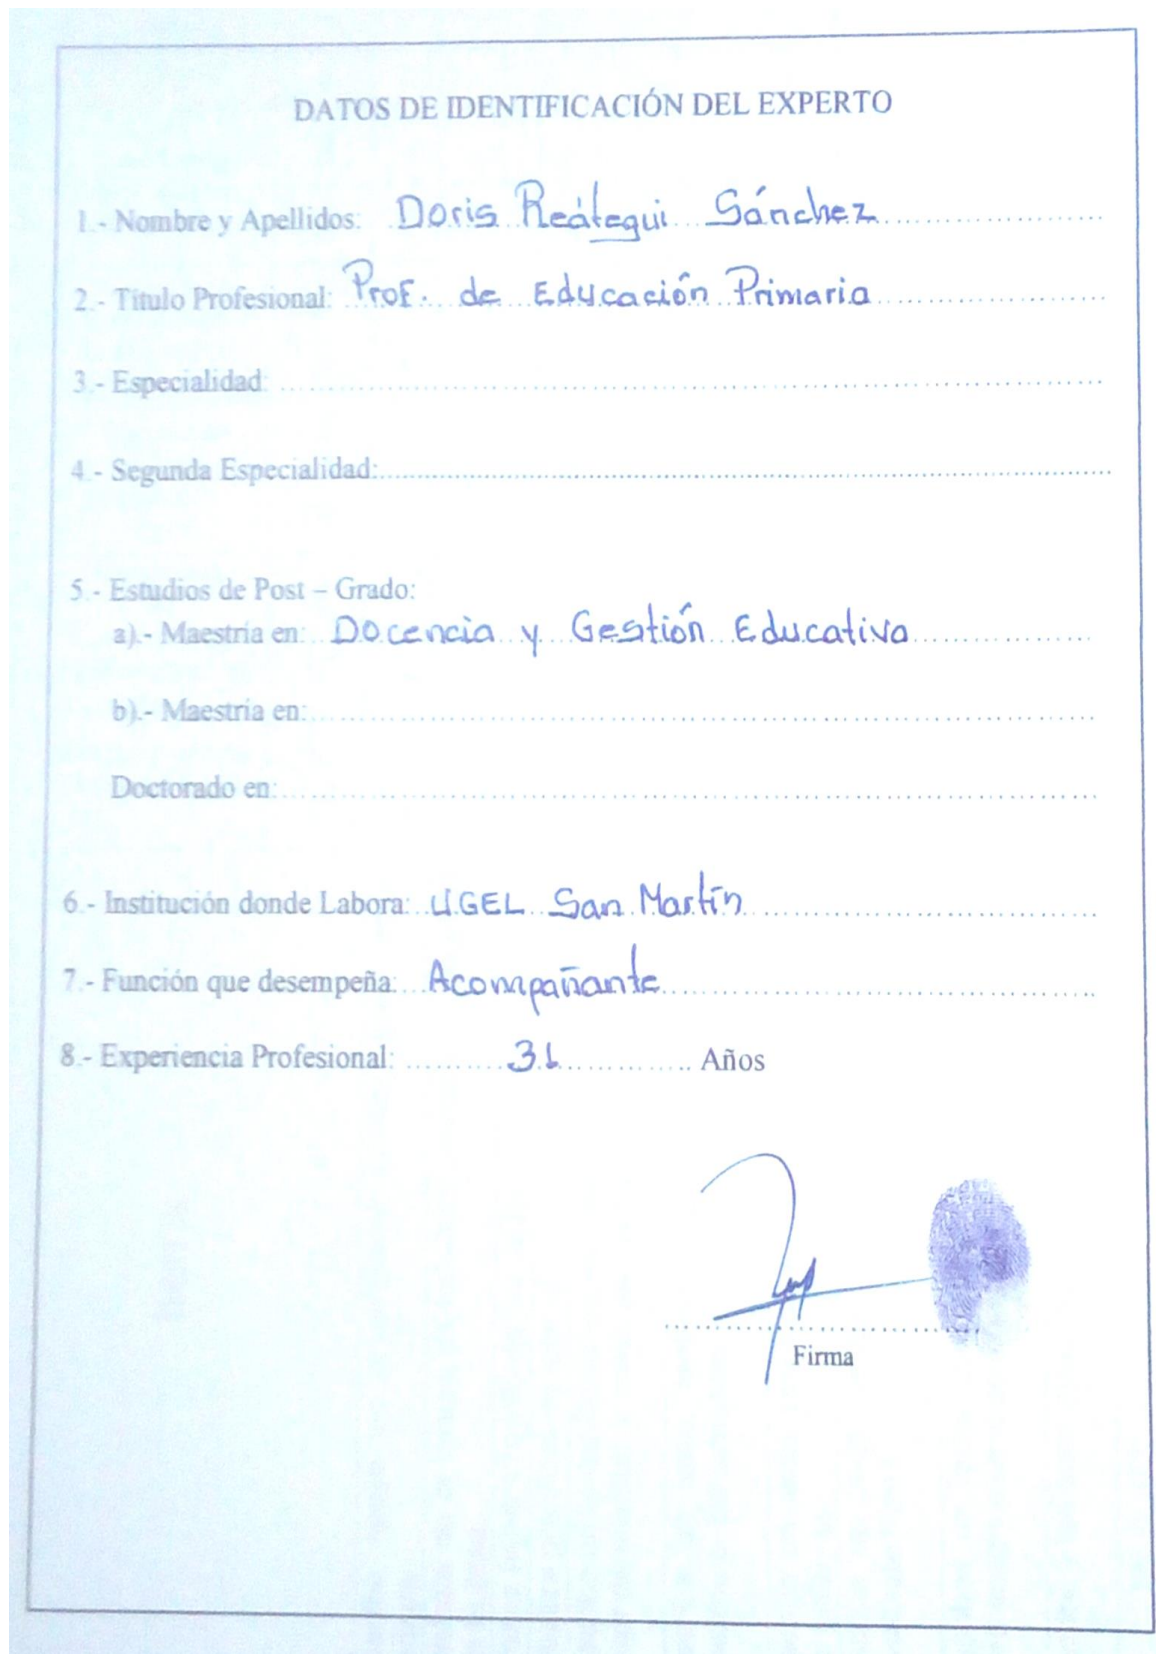 DATOS DE IDENTIFICACIÓN DEL EXPERTO
1.- Nombre y Apellidos: Doris Reátegui Sánchez
2.- Titulo Profesional: Prof. de Educación Primaria
3.- Especialidad:
4.- Segunda Especialidad:
5.- Estudios de Post – Grado:
a).- Maestria en: Docencia y Gestión Educativa
b).- Maestria en:
Doctorado en:
6.- Institución donde Labora: UGEL San Martín
7.- Función que desempeña: Acompañante
8.- Experiencia Profesional: 31 Años
Firma